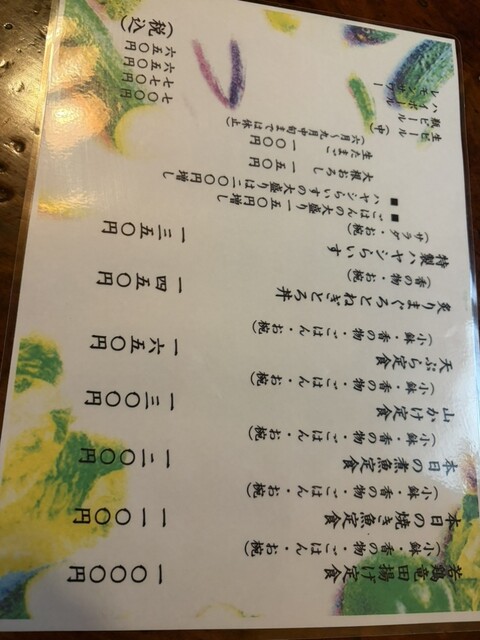 若鶏竜田揚げ定食 一〇〇〇円
(小鉢・香の物・ごはん・お椀)
本日の焼き魚定食 一一〇〇円
(小鉢・香の物・ごはん・お椀)
本日の煮魚定食 一二〇〇円
(小鉢・香の物・ごはん・お椀)
山かけ定食 一三〇〇円
(小鉢・香の物・ごはん・お椀)
天ぷら定食 一六五〇円
(小鉢・香の物・ごはん・お椀)
炙りまぐろとねぎとろ丼 一四五〇円
(香の物・お椀)
特製ハヤシらいす 一三五〇円
(サラダ・お椀)
■ごはんの大盛り一五〇円増し
■ハヤシらいすの大盛りは二〇〇円増し
大根おろし 一五〇円
生たまご 一〇〇円
(六月〜九月中旬までは休止)
生ビール 七〇〇円
瓶ビール(中) 七七〇円
ハイボール 六五〇円
レモンサワー 六五〇円
(税込)